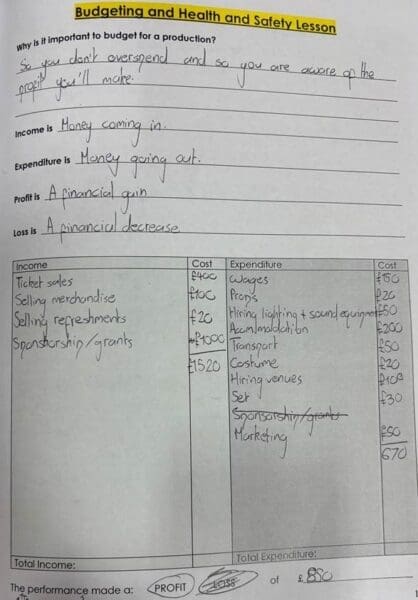 Budgeting and Health and Safety Lesson
Why is it important to budget for a production?
So you don't overspend and so you are aware of the
profit you'll make.
Income is Money coming in.
Expenditure is Money going out.
Profit is A financial gain
Loss is A financial decrease
Income Cost Expenditure Cost
Ticket sales £400 Wages £150
Selling merchandise £100 Props £20
Selling refreshments £20 Hiring lighting + sound equipment £50
Sponsorship/grants £1000 Accommodation £200
£1520 Transport £50
Costume £20
Hiring venues £100
Set £30
Sponsorship/grants
Marketing £50
670
Total Income: Total Expenditure:
The performance made a: PROFIT LOSS of £850